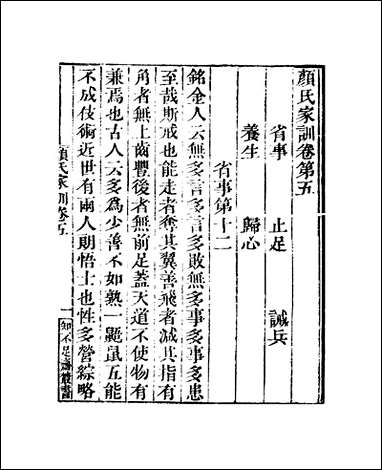 顏氏家訓卷第五
省事 止足 誡兵
養生 歸心
省事第十二
銘金人云無多言多言多敗無多事多事多患
至哉斯戒也能走者奪其翼善飛者減其指有
角者無上齒豐後者無前足蓋天道不使物有
兼焉也古人云多為少善不如熟一鼫鼠五能
不成伎術近世有兩人朗悟士也性多營綜略
顏氏家訓卷五
一
知不足齋叢書